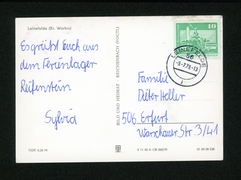 Leinefelde (Kr. Worbis)
Es grüßt Euch aus
dem Ferienlager
Reifenstein
Sylvia
BILD UND HEIMAT · REICHENBACH (VOGTL)
10
LEINEFELDE
56
Familie
Dieter Heller
506 Erfurt
Warschauer Str. 3/41